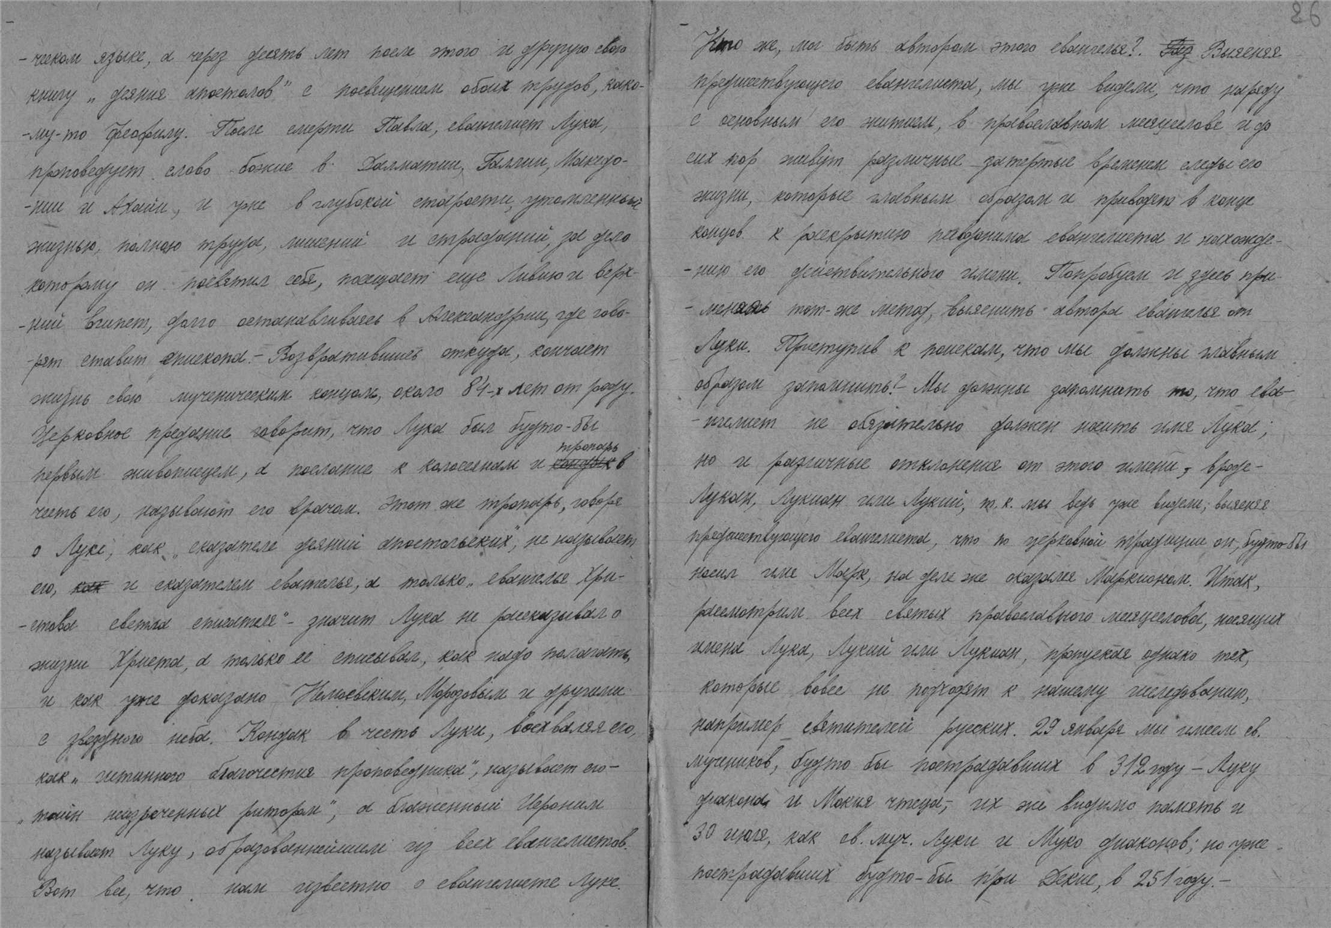 -ческом языке, а через десять лет после этого и другую свою
книгу „деяния апостолов" с посвящением обоих трудов, како-
-му-то Феофилу. После смерти Павла, евангелист Лука,
проповедует слово божие в Далматии, Галлии, Македо-
-нии и Ахаии, и уже в глубокой старости, утомленный
жизнью, полною труда, лишений и страданий, за дело
которому он посвятил себя, посещает еще Ливию и верх-
-ний Египет, долго останавливаясь в Александрии, где гово-
рят ставит епископа. – Возвратившись оттуда, кончает
жизнь свою мученическим концом, около 84-х лет от роду.
Церковное предание говорит, что Лука был будто-бы
первым живописцем, а послание к колоссянам и тропарь в
честь его, называют его врачом. Этот же тропарь, говоря
о Луке, как „сказателе деяний апостольских", не называет
его, как и сказателем евангелья, а только „евангелья Хри-
-стова светла списателя" – значит Лука не рассказывал о
жизни Христа, а только ее списывал, как надо полагать,
и как уже доказано Немоевским, Морозовым и другими
с звездного неба. Кондак в честь Луки, восхваляя его,
как „истинного благочестия проповедника", называет его –
„тайн неизреченных ритором", а блаженный Иероним
называет Луку, образованнейшим из всех евангелистов.
Вот все, что нам известно о евангелисте Луке.
26
Кто же, мог быть автором этого евангелья? Выясняя
предшествующего евангелиста, мы уже видели, что наряду
с основным его житием, в православном месяцеслове и до
сих пор живут различные затертые временем следы его
жизни, которые главным образом и приводят в конце
концов к раскрытию псевдонима евангелиста и нахожде-
-нию его действительного имени. Попробуем и здесь при-
-менить тот-же метод, выяснить автора евангелья от
Луки. Приступив к поискам, что мы должны главным
образом запомнить? – Мы должны запомнить то, что ева-
-нгелист не обязательно должен носить имя Лука;
но и различные отклонения от этого имени, вроде –
Лукан, Лукиан или Лукий, т.к. мы ведь уже видели, выясняя
предшествующего евангелиста, что по церковной традиции он, будто-бы
носил имя Марк, на деле же оказался Маркионом. Итак,
рассмотрим всех святых православного месяцеслова, носящих
имена Лука, Лукий или Лукиан, пропуская однако тех,
которые вовсе не подходят к нашему исследованию,
например святителей русских. 29 января мы имеем св.
мучеников, будто бы пострадавших в 312 году – Луку
диакона и Мокия чтеца, – их же видимо память и
30 июля, как св. муч. Луки и Муко диаконов; но уже
пострадавших будто-бы при Декие, в 251 году. –